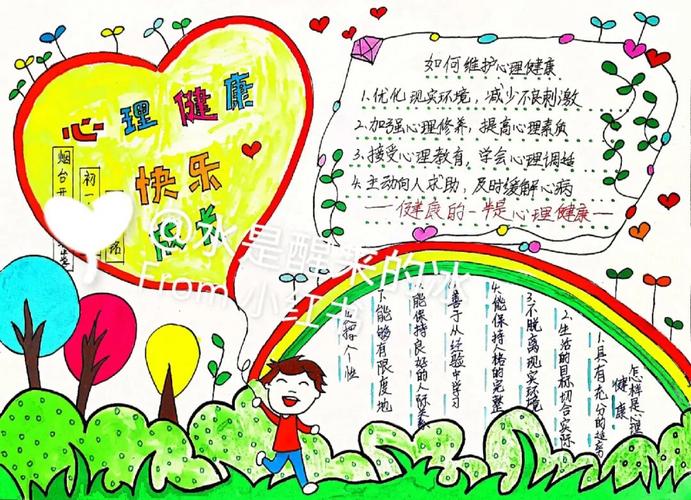 心理健康
快乐
成长
烟台开
初一
如何维护心理健康
1.优化现实环境,减少不良刺激
2.加强心理修养,提高心理素质
3.接受心理教育,学会心理调适
4.主动向人求助,及时缓解心病
——健康的一半是心理健康——
@水是醒来的冰
From 小红书
怎样是心理
健康
1.具有充分的适应
2.生活的目标切合实际
3.不脱离现实环境
4.能保持人格的完整
善于从经验中学习
能保持良好的人际关系
能够有限度地
挥个性